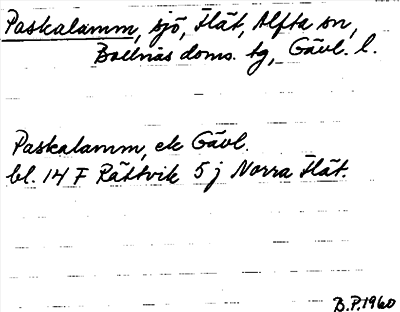 Paskalamm, sjö, Flät, Alfta sn,
Bollnäs doms. tg, Gävl. l.
Paskalamm, ek Gävl.
bl. 14 F Rättvik 5 j Norra Flät.
B.P. 1960